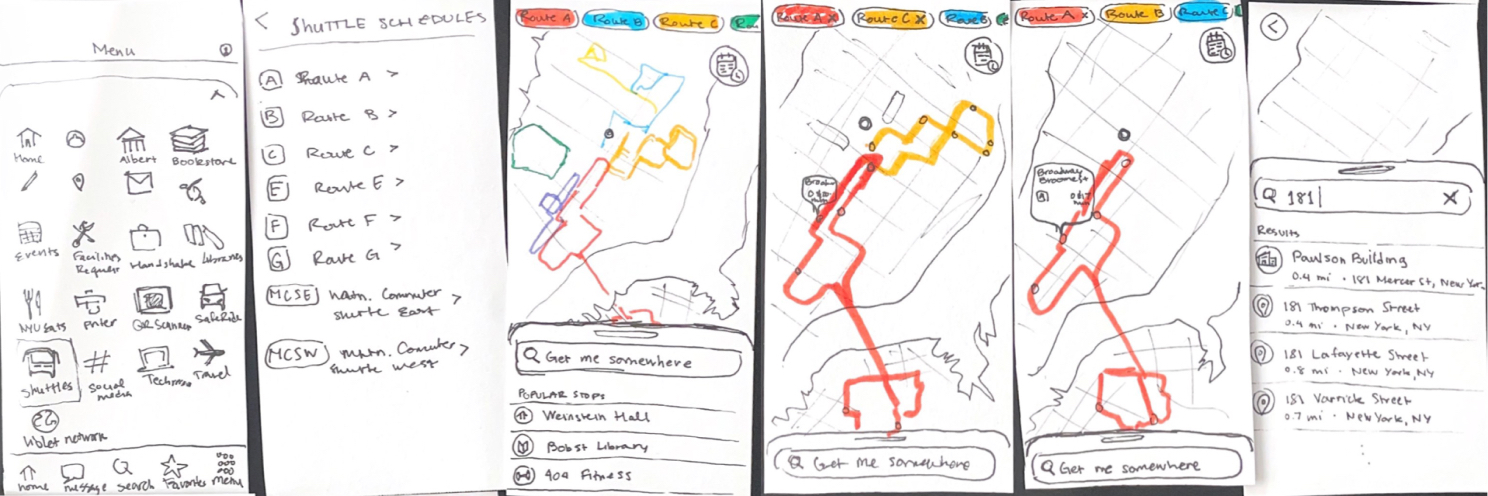 Menu
Home
Albert
Bookstore
Events
Facilities
Request
Handshake
Libraries
NYU Eats
Printer
QR Scanner
SafeRide
Shuttles
#
Social
media
Travel
Violet network
home
message
search
Favorites
menu
< SHUTTLE SCHEDULES
A Route A >
B Route B >
C Route C >
E Route E >
F Route F >
G Route G >
MCSE Commuter >
shuttle East
MCSW >
shuttle west
Route A
Route B
Route C
Get me somewhere
POPULAR STOPS
Weinstein Hall
Bobst Library
404 Fitness
Route A x
Route C x
Route B
Get me somewhere
Route A x
Route B
Broadway
Broome st
A
Get me somewhere
<
181 X
RESULTS
Paulson Building
0.4 mi · 181 Mercer St, New Yor
181 Thompson Street
0.4 mi · New York, NY
181 Lafayette Street
0.8 mi · New York, NY
181 Varrick Street
0.7 mi · New York, NY